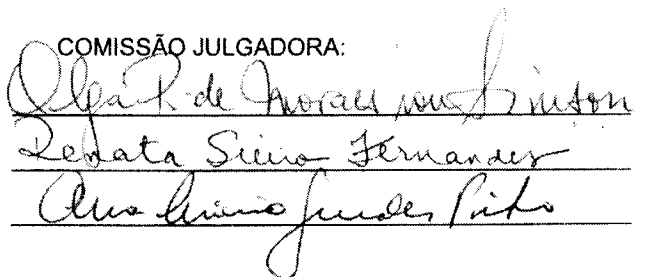 COMISSÃO JULGADORA:
Olga R. de Moraes von Simson
Renata Sieiro Fernandes
Ana Guedes Pinto